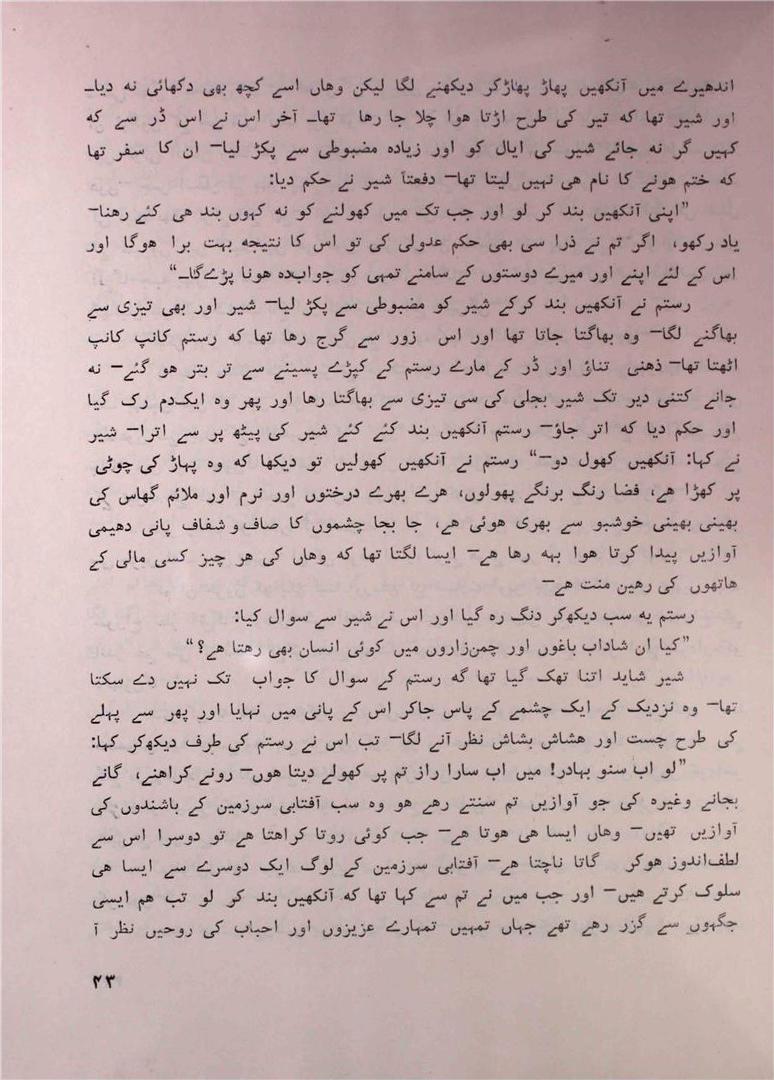 اندھیرے میں آنکھیں پھاڑ پھاڑکر دیکھنے لگا لیکن وھاں اسے کچھ بھی دکھائی نہ دیا۔
اور شیر تھا کہ تیر کی طرح اڑتا ھوا چلا جا رھا تھا۔ آخر اس نے اس ڈر سے کہ
کہیں گر نہ جائے شیر کی ایال کو اور زیادہ مضبوطی سے پکڑ لیا— ان کا سفر تھا
کہ ختم ھونے کا نام ھی نہیں لیتا تھا— دفعتاً شیر نے حکم دیا:
”اپنی آنکھیں بند کر لو اور جب تک میں کھولنے کو نہ کہوں بند ھی کئے رھنا—
یاد رکھو، اگر تم نے ذرا سی بھی حکم عدولی کی تو اس کا نتیجہ بہت برا ھوگا اور
اس کے لئے اپنے اور میرے دوستوں کے سامنے تمہی کو جوابدہ ھونا پڑےگا۔“
رستم نے آنکھیں بند کرکے شیر کو مضبوطی سے پکڑ لیا— شیر اور بھی تیزی سے
بھاگنے لگا— وہ بھاگتا جاتا تھا اور اس زور سے گرج رھا تھا کہ رستم کانپ کانپ
اٹھتا تھا— ذھنی تناؤ اور ڈر کے مارے رستم کے کپڑے پسینے سے تر بتر ھو گئے— نہ
جانے کتنی دیر تک شیر بجلی کی سی تیزی سے بھاگتا رھا اور پھر وہ ایکدم رک گیا
اور حکم دیا کہ اتر جاؤ— رستم آنکھیں بند کئے کئے شیر کی پیٹھ پر سے اترا— شیر
نے کہا: آنکھیں کھول دو—“ رستم نے آنکھیں کھولیں تو دیکھا کہ وہ پہاڑ کی چوٹی
پر کھڑا ھے، فضا رنگ برنگے پھولوں، ھرے بھرے درختوں اور نرم اور ملائم گھاس کی
بھینی بھینی خوشبو سے بھری ھوئی ھے، جا بجا چشموں کا صاف و شفاف پانی دھیمی
آوازیں پیدا کرتا ھوا بہہ رھا ھے— ایسا لگتا تھا کہ وھاں کی ھر چیز کسی مالی کے
ھاتھوں کی رھین منت ھے—
رستم یہ سب دیکھکر دنگ رہ گیا اور اس نے شیر سے سوال کیا:
”کیا ان شاداب باغوں اور چمنزاروں میں کوئی انسان بھی رھتا ھے؟“
شیر شاید اتنا تھک گیا تھا گہ رستم کے سوال کا جواب تک نہیں دے سکتا
تھا— وہ نزدیک کے ایک چشمے کے پاس جاکر اس کے پانی میں نہایا اور پھر سے پہلے
کی طرح چست اور ھشاش بشاش نظر آنے لگا— تب اس نے رستم کی طرف دیکھکر کہا:
”لو اب سنو بہادر! میں اب سارا راز تم پر کھولے دیتا ھوں— رونے کراھنے، گانے
بجانے وغیرہ کی جو آوازیں تم سنتے رھے ھو وہ سب آفتابی سرزمین کے باشندوں کی
آوازیں تھیں— وھاں ایسا ھی ھوتا ھے— جب کوئی روتا کراھتا ھے تو دوسرا اس سے
لطفاندوز ھوکر گاتا ناچتا ھے— آفتابی سرزمین کے لوگ ایک دوسرے سے ایسا ھی
سلوک کرتے ھیں— اور جب میں نے تم سے کہا تھا کہ آنکھیں بند کر لو تب ھم ایسی
جگہوں سے گزر رھے تھے جہاں تمہیں تمہارے عزیزوں اور احباب کی روحیں نظر آ
۴۳